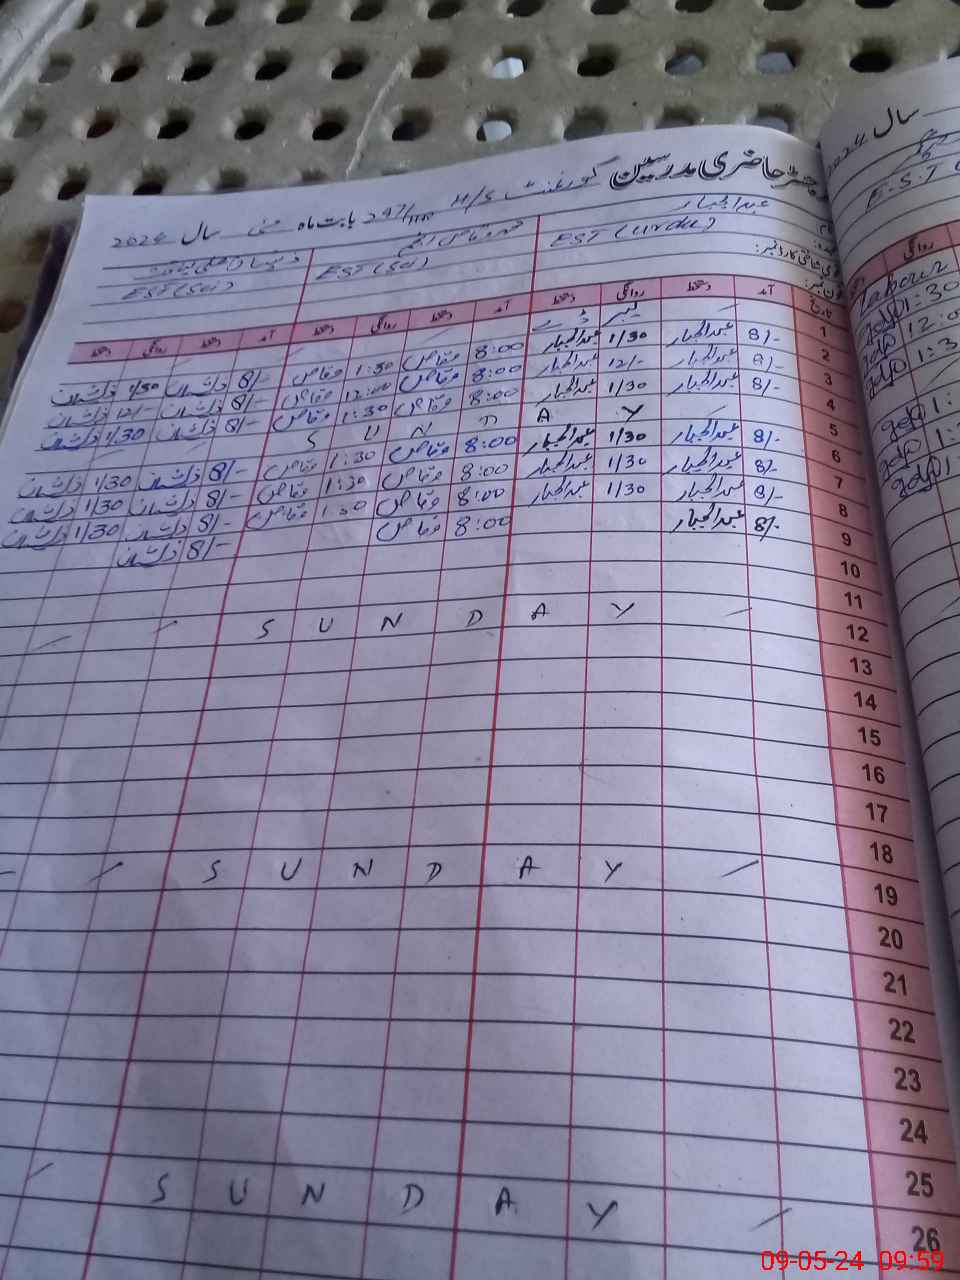 رجسٹر حاضری مدرسین گورنمنٹ H/S 297/ بابت ماہ مئی سال 2024
عبدالجبار
EST (urdu) EST (Sci) EST (Sci)
تاریخ آمد دستخط روانگی دستخط آمد دستخط روانگی دستخط آمد دستخط روانگی دستخط
1 لیبر ڈے
2 8/- عبدالجبار 1/30 عبدالجبار 8:00 وقاص 1:30 وقاص 8/- 1/30
3 8/- عبدالجبار 12/- عبدالجبار 8:00 وقاص 12:00 وقاص 8/- 12/-
4 8/- عبدالجبار 1/30 عبدالجبار 8:00 وقاص 1:30 وقاص 8/- 1/30
5 S U N D A Y
6 8/- عبدالجبار 1/30 عبدالجبار 8:00 وقاص 1:30 وقاص 8/- 1/30
7 8/- عبدالجبار 1/30 عبدالجبار 8:00 وقاص 1:30 وقاص 8/- 1/30
8 8/- عبدالجبار 1/30 عبدالجبار 8:00 وقاص 1:30 وقاص 8/- 1/30
9 8/- عبدالجبار 8:00 وقاص 8/-
10
11
12 S U N D A Y
13
14
15
16
17
18
19 S U N D A Y
20
21
22
23
24
25
26 S U N D A Y
سال 2024
E.S.T
روانگی
Labour
1:30
12:0
1:3
1:
1:
1:
09-05-24 09:59